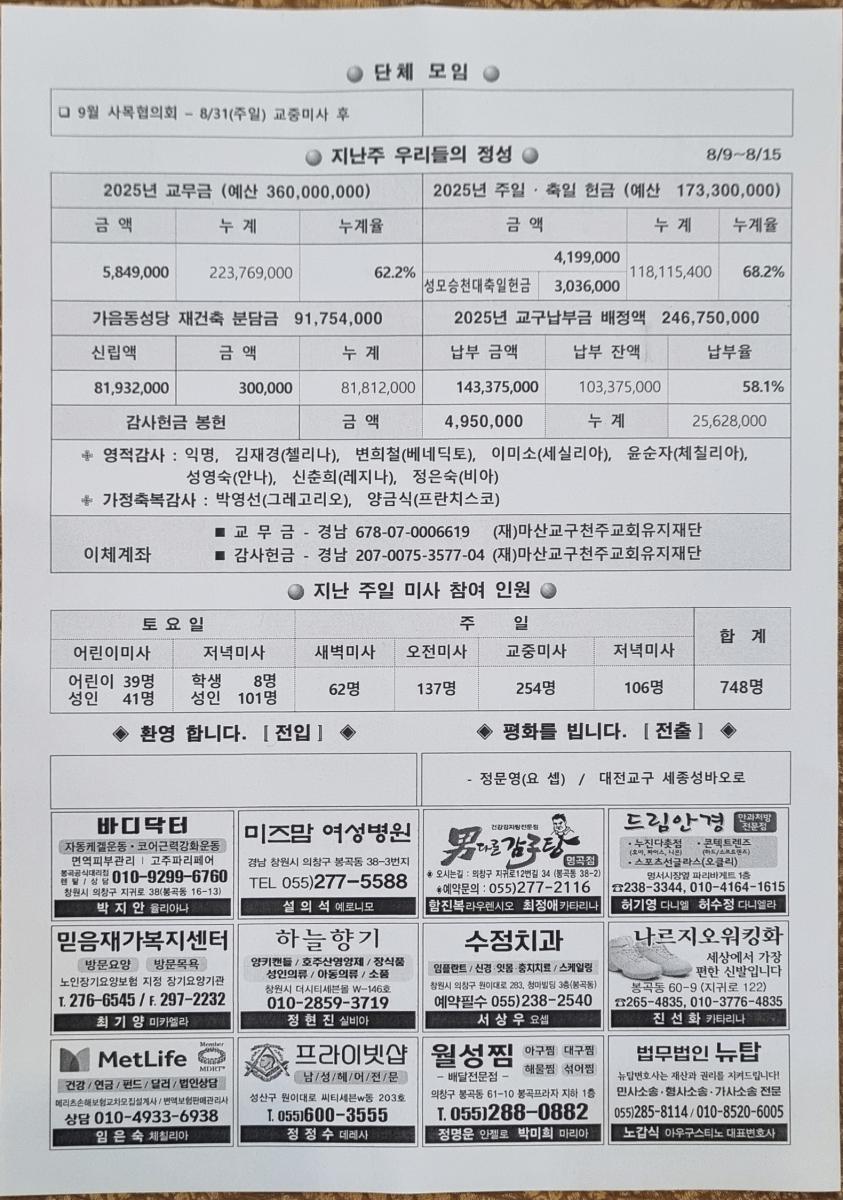 단체 모임
❏ 9월 사목협의회 – 8/31(주일) 교중미사 후
지난주 우리들의 정성 8/9~8/15
2025년 교무금 (예산 360,000,000) 2025년 주일 · 축일 헌금 (예산 173,300,000)
금 액 누 계 누계율 금 액 누 계 누계율
5,849,000 223,769,000 62.2% 4,199,000 118,115,400 68.2%
성모승천대축일헌금 3,036,000
가음동성당 재건축 분담금 91,754,000 2025년 교구납부금 배정액 246,750,000
신립액 금 액 누 계 납부 금액 납부 잔액 납부율
81,932,000 300,000 81,812,000 143,375,000 103,375,000 58.1%
감사헌금 봉헌 금 액 4,950,000 누 계 25,628,000
영적감사 : 익명, 김재경(첼리나), 변희철(베네딕토), 이미소(세실리아), 윤순자(체칠리아),
성영숙(안나), 신춘희(레지나), 정은숙(비아)
가정축복감사 : 박영선(그레고리오), 양금식(프란치스코)
이체계좌
■ 교 무 금 - 경남 678-07-0006619 (재)마산교구천주교회유지재단
■ 감사헌금 - 경남 207-0075-3577-04 (재)마산교구천주교회유지재단
지난 주일 미사 참여 인원
토요일 주 일 합 계
어린이미사 저녁미사 새벽미사 오전미사 교중미사 저녁미사
어린이 39명 학생 8명 62명 137명 254명 106명 748명
성인 41명 성인 101명
◈ 환영 합니다. [전입] ◈ ◈ 평화를 빕니다. [전출] ◈
- 정문영(요 셉) / 대전교구 세종성바오로
바디닥터
자동케겔운동 · 코어근력강화운동
면역피부관리 | 고주파리페어
봉곡공식대리점
렌 탈 / 상 담 010-9299-6760
창원시 의창구 지귀로 38(봉곡동 16-13)
박 지 안 율리아나
미즈맘 여성병원
경남 창원시 의창구 봉곡로 38-3번지
TEL 055)277-5588
설 의 석 예로니모
건강감자탕전문점
男다른감루탕
명곡점
오시는길 : 의창구 지귀로12번길 34 (봉곡동 38-2)
예약문의 : 055)277-2116
함진복 라우렌시오 최정애 카타리나
드림안경 안과처방 전문점
· 누진다촛점 · 콘텍트렌즈
(호야, 짜이스, 니콘) (하드/소프트렌즈)
· 스포츠선글라스(오클리)
명서시장옆 파리바게트 1층
☎238-3344, 010-4164-1615
허기영 다니엘 허수정 다니엘라
믿음재가복지센터
방문요양 방문목욕
노인장기요양보험 지정 장기요양기관
T. 276-6545 / F. 297-2232
최 기 양 미카엘라
하늘향기
양키캔들 / 호주산영양제 / 장식품
성인의류 / 아동의류 / 소품
창원시 더시티세븐몰 W-146호
010-2859-3719
정 현 진 실비아
수정치과
임플란트 / 신경 · 잇몸 · 충치치료 / 스케일링
창원시 의창구 원이대로 283, 청마빌딩 3층(봉곡동)
예약필수 055)238-2540
서 상 우 요셉
나르지오워킹화
세상에서 가장
편한 신발입니다
봉곡동 60-9 (지귀로 122)
☎265-4835, 010-3776-4835
진 선 화 카타리나
MetLife Member MDRT
건강 / 연금 / 펀드 / 달러 / 법인상담
메리츠손해보험교차모집설계사 / 변액보험판매관리사
상담 010-4933-6938
임 은 숙 체칠리아
프라이빗샵
남/성/헤/어/전/문
성산구 원이대로 씨티세븐w동 203호
T. 055)600-3555
정 정 수 데레사
월성찜 아구찜 대구찜
– 배달전문점 – 해물찜 섞어찜
의창구 봉곡동 61-10 봉곡프라자 지하 1층
T. 055)288-0882
정명운 안젤로 박미희 마리아
법무법인 뉴탑
뉴탑변호사는 재산과 권리를 지켜드립니다!
민사소송 · 형사소송 · 가사소송 전문
055)285-8114 / 010-8520-6005
노갑식 아우구스티노 대표변호사